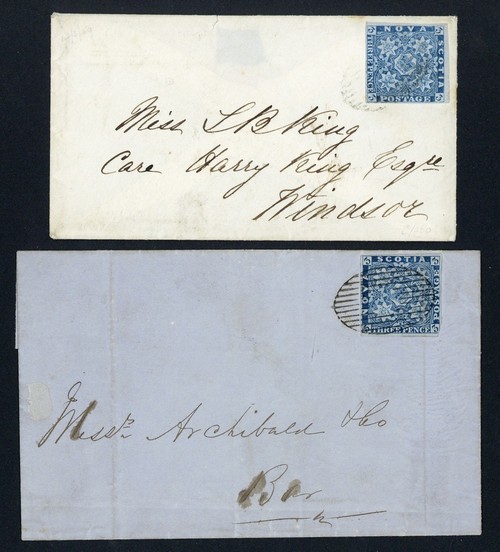 NOVA
SCOTIA
THREE PENCE
POSTAGE
Miss L B King
Care Harry King Esqre
Windsor
SCOTIA
NOVA
POSTAGE
THREE PENCE
Messrs Archibald & Co